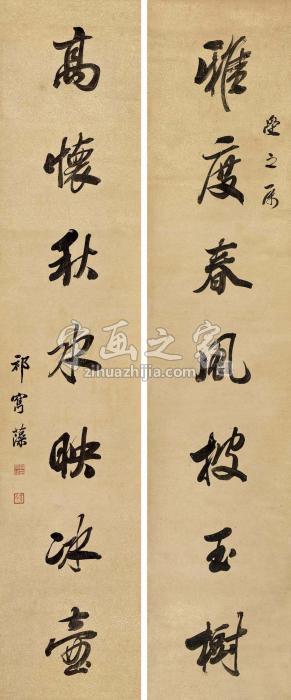 雅度春風披玉樹
高懷秋水映冰壺
祁寯藻
書画之家
zihuazhijia.com